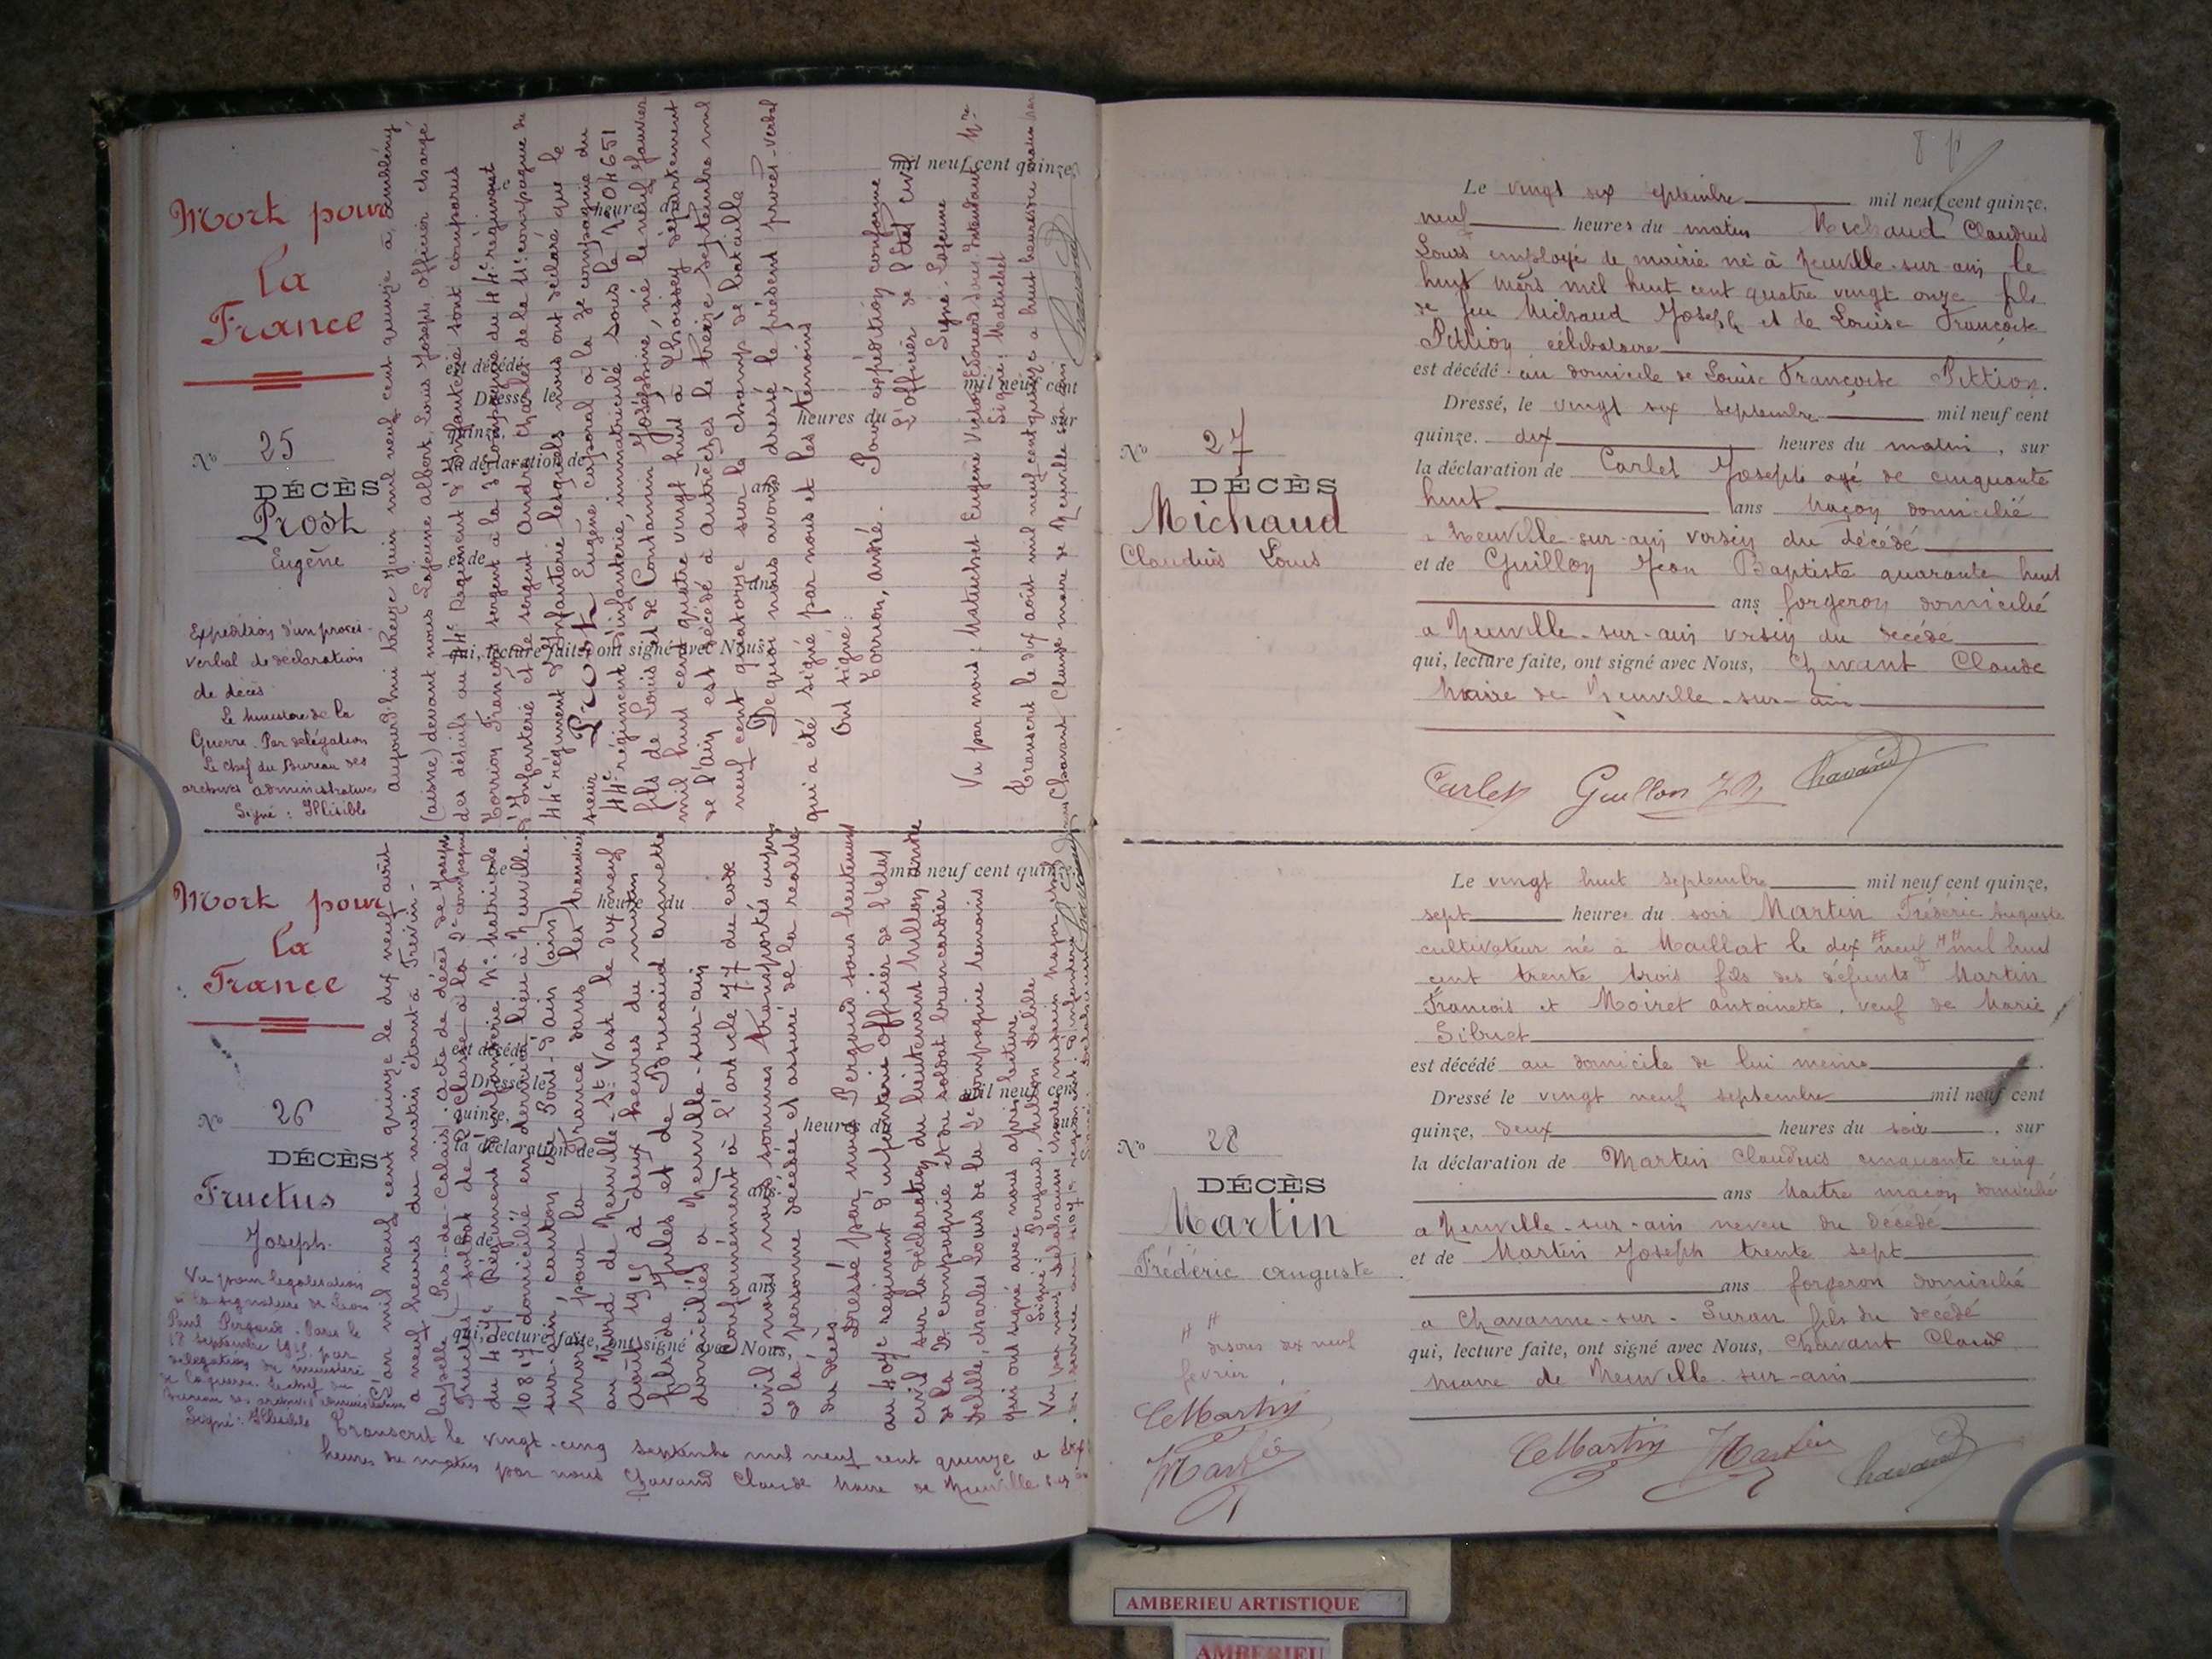 Mort pour
la
France
N° 25
DÉCÈS
Prost
Eugène
Expédition d'un procès-
verbal de déclaration
de décès
Le Ministre de la
Guerre. Par délégation
Le chef du Bureau des
archives administratives
Signé : Illisible
aujourd'hui treize Juin mil neuf cent quinze à
(aisne) devant nous Lafeune albert Louis Joseph officier chargé
des détails au 44e Régiment d'Infanterie sont comparus
Torrion François sergent à la 3e Compagnie du 44e régiment
d'Infanterie et sergent André Charles de la 11e compagnie du
44e régiment d'Infanterie lesquels nous ont déclaré que le
sieur Prost Eugène caporal à la 3e compagnie du
44e régiment d'infanterie, immatriculé sous le N° 04651
fils de Louis et de Contamin Joséphine, né le neuf Janvier
mil huit cent quatre vingt huit à Thoissey département
de l'ain est décédé à Autrèches le treize septembre mil
neuf cent quatorze sur le champ de bataille
De quoi nous avons dressé le présent procès-verbal
qui a été signé par nous et les témoins
Ont signé :
Torrion, andré. - Pour expédition conforme
L'officier de l'état civil
Signé : Lafeune
Vu par nous : Matuchet Eugène Victor Edouard sous Intendant Mre
Signé : Matuchet
Transcrit le dix août mil neuf cent quinze a huit heures du matin par
nous Chavant Claude maire de Neuville sur ain
mil neuf cent quinze,
heures du
est décédé
Dressé le
mil neuf cent
quinze,
heures du
sur
la déclaration de
ans
et de
ans
qui, lecture faite, ont signé avec Nous,
Mort pour
la
France
N° 26
DÉCÈS
Fructus
Joseph.
Vu pour légalisation
de la signature de Léon
Paul Pergaud. Paris le
18 septembre 1915. par
délégation du ministère
de la guerre. Le chef du
Bureau des archives administratives
Signé : Illisible
L'an mil neuf cent quinze le dix neuf août
a neuf heures du matin étant à Frévin-
Capelle (Pas-de-Calais) : acte de décès de Joseph
Fructus soldat de 2e Classe à la 2e compagnie
du 407e Régiment d'Infanterie N° matricule
10817 domicilié en dernier lieu à Neuville-
sur-ain, canton de Pont-d'ain (ain)
mort pour la France dans les tranchées
au Nord de Neuville-St-Vast le dix neuf
août 1915 à deux heures du matin
fils de Jules et de Bricaud annette
domiciliés a Neuville-sur-ain
Conformément à l'article 77 du code
civil nous nous sommes transportés auprès
de la personne décédée et assuré de la réalité
du décès
Dressé par nous Pergaud sous lieutenant
au 407e régiment d'infanterie officier de l'état
civil sur la déclaration du lieutenant Millon andré
de la 2e compagnie et du soldat brancardier
Delille, charles Louis de la 2e compagnie témoins
qui ont signé avec nous après lecture
Signé : Pergaud, Millon Delille
Transcrit le vingt-cinq septembre mil neuf cent quinze a dix
heures du matin par nous Chavand Claude Maire de Neuville sur ain
Le
mil neuf cent quinze,
heures du
est décédé
Dressé le
mil neuf cent
quinze,
heures du
sur
la déclaration de
ans
et de
ans
qui, lecture faite, ont signé avec Nous,
N° 27
DÉCÈS
Michaud
Claudius Louis
Le vingt six septembre mil neuf cent quinze,
neuf heures du matin Michaud Claudius
Louis employé de mairie né à Neuville-sur-ain le
huit mars mil huit cent quatre vingt onze fils
de feu Michaud Joseph et de Louise Françoise
Pittion célibataire
est décédé au domicile de Louise Françoise Pittion.
Dressé, le vingt six septembre mil neuf cent
quinze. dix heures du matin, sur
la déclaration de Carlet Joseph agé de cinquante
huit ans Maçon domicilié
a Neuville-sur-ain voisin du décédé
et de Guillon Jean Baptiste quarante huit
ans forgeron domicilié
a Neuville-sur-ain voisin du décédé
qui, lecture faite, ont signé avec Nous, Chavant Claude
Maire de Neuville-sur-ain
Carlet Guillon J B Chavand
N° 28
DÉCÈS
Martin
Frédéric Auguste
# #
disons dix neuf
février
CMartin
Martin
Le vingt huit septembre mil neuf cent quinze,
sept heures du soir Martin Frédéric Auguste
cultivateur né à Maillat le dix # neuf # # mil huit
cent trente trois fils des défunts Martin
François et Moiret Antoinette, veuf de Marie
Sibuet
est décédé au domicile de lui meme
Dressé le vingt neuf septembre mil neuf cent
quinze, deux heures du soir, sur
la déclaration de Martin Claudius cinquante cinq
ans Maitre maçon domicilié
a Neuville-sur-ain neveu du décédé
et de Martin Joseph trente sept
ans forgeron domicilié
a Chavanne-sur-Suran fils du décédé
qui, lecture faite, ont signé avec Nous, Chavant Claude
Maire de Neuville-sur-ain
CMartin Martin Chavand
AMBERIEU ARTISTIQUE
AMBERIEU